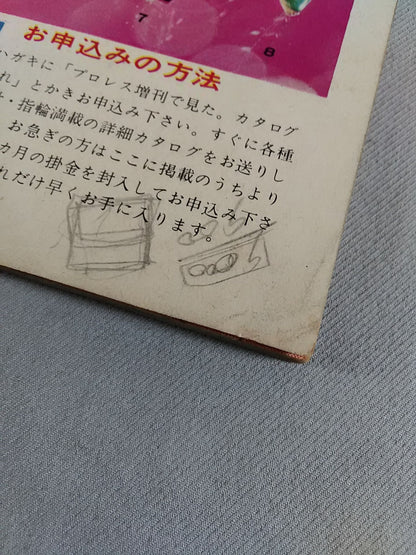 7
8
お申込みの方法
ハガキに「プロレス増刊で見た。カタログ
れ」とかきお申込み下さい。すぐに各種
・指輪満載の詳細カタログをお送りし
。お急ぎの方はここに掲載のうちより
カ月の掛金を封入してお申込み下さ
れだけ早くお手に入ります。